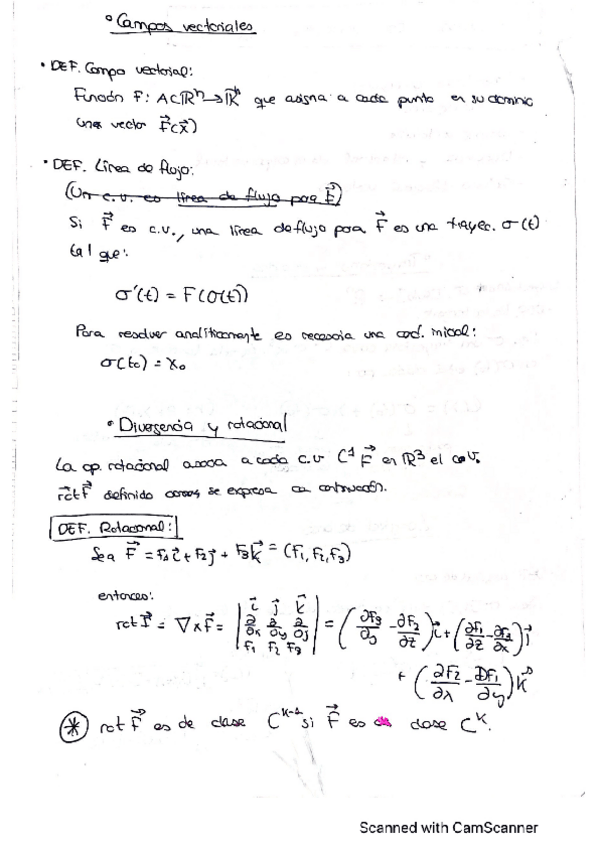 ° Campos vectoriales
• DEF. Campo vectorial:
Función F: A⊂ℝⁿ→ℝⁿ que asigna a cada punto en su dominio
una vector F⃗(x⃗)
• DEF. Línea de flujo:
(Un c.v. es línea de flujo para F⃗)
Si F⃗ es c.v., una línea de flujo para F⃗ es una trayec. σ(t)
tal que:
σ'(t) = F(σ(t))
Para resolver analíticamente es necesaria una cond. inicial:
σ(t₀) = x₀
• Divergencia y rotacional
La op. rotacional asocia a cada c.v. C¹ F⃗ en ℝ³ el c.v.
rot F⃗ definido como se expresa a continuación.
DEF. Rotacional:
Sea F⃗ = F₁i⃗ + F₂j⃗ + F₃k⃗ = (F₁, F₂, F₃)
entonces:
rot F⃗ = ∇×F⃗ = | i⃗ j⃗ k⃗ ; ∂/∂x ∂/∂y ∂/∂j ; F₁ F₂ F₃ | = (∂F₃/∂y - ∂F₂/∂z) i⃗ + (∂F₁/∂z - ∂F₃/∂x) j⃗
+ (∂F₂/∂x - ∂F₁/∂y) k⃗
(*) rot F⃗ es de clase Cᵏ⁻¹ si F⃗ es de clase Cᵏ.
Scanned with CamScanner